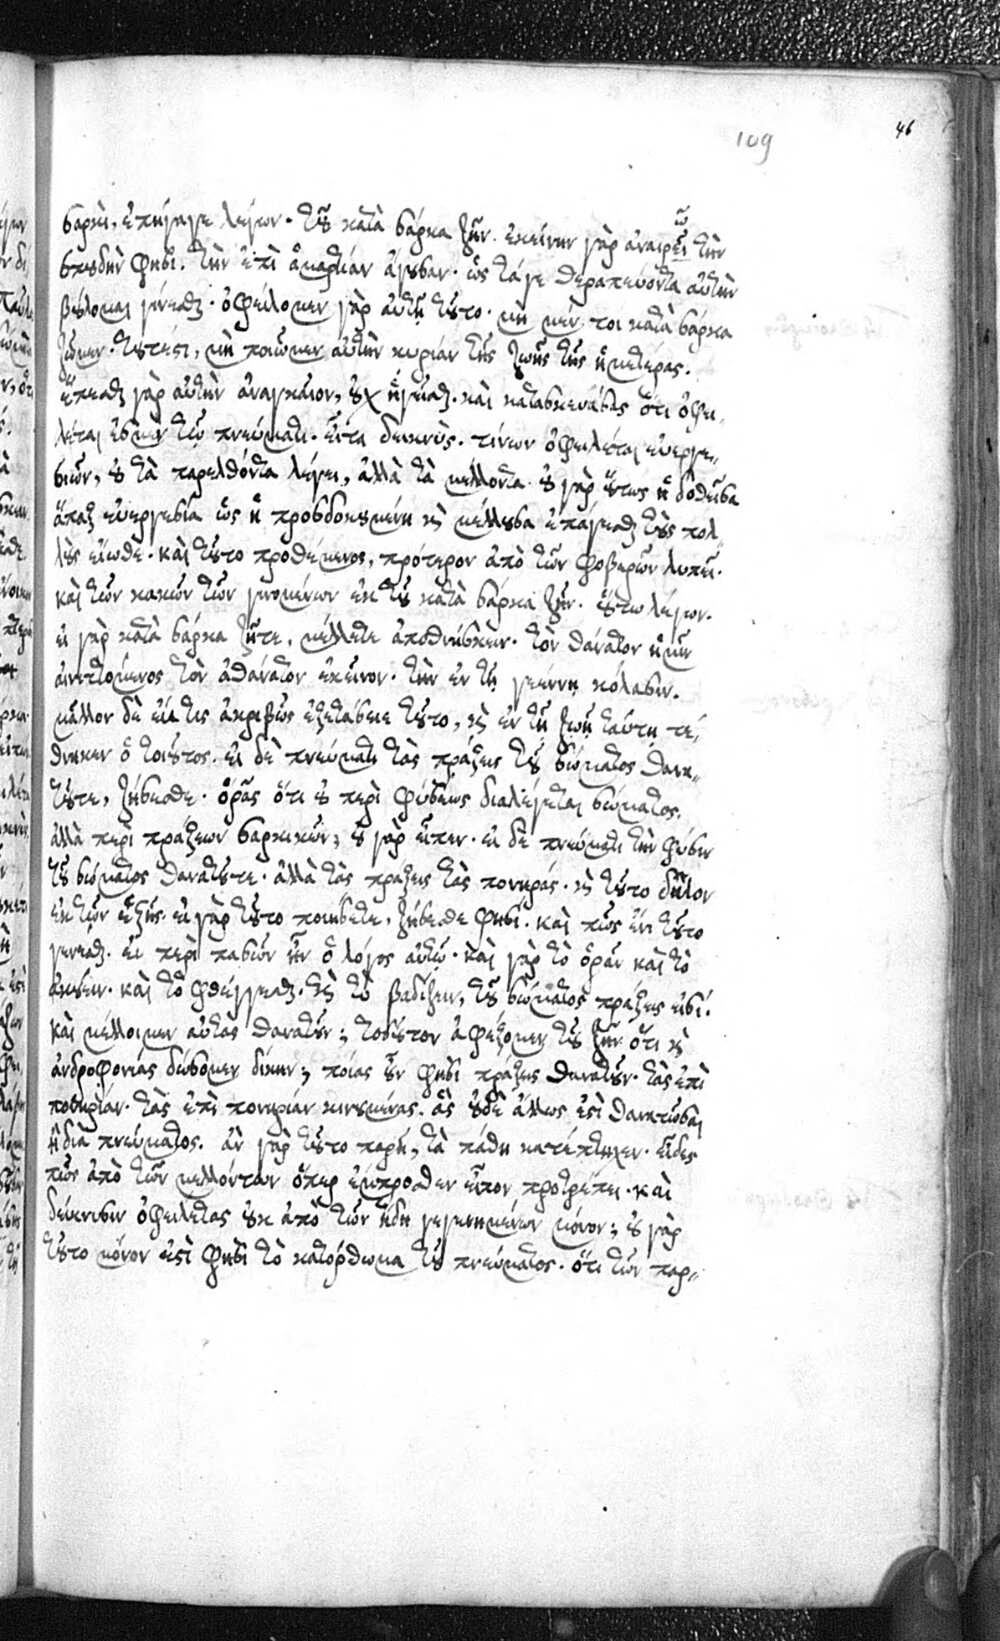 109 46
σαρκὶ, ἐπήγαγε λέγων· τοῦ κατὰ σάρκα ζῆν. ἐκείνην γὰρ ἀναιρεῖ τὴν
σπουδὴν φησὶ. τὴν ἐπὶ ἁμαρτίαν ἄγουσαν· ὡς τάγε θεραπεύοντα αὐτὴν
βούλομαι γίνεσθαι· ὀφείλομεν γὰρ αὐτῇ τοῦτο· μὴ μέν τοι κατὰ σάρκα
ζῶμεν· τουτέστι, μὴ ποιῶμεν αὐτὴν κυρίαν τῆς ζωῆς τῆς ἡμετέρας.
ἕπεσθαι γὰρ αὐτὴν ἀναγκαῖον, οὐχ ἡγεῖσθαι. καὶ κατασκευάσας ὅτι ὀφει-
λέται ἐσμὲν τῷ πνεύματι. εἶτα δεικνὺς. τίνων ὀφειλέται εὐεργε-
σιῶν, οὐ τὰ παρελθόντα λέγει, ἀλλὰ τὰ μέλλοντα· οὐ γὰρ οὕτως ἡ δοθεῖσα
ἅπαξ εὐεργεσία ὡς ἡ προσδοκουμένη καὶ μέλλουσα ἐπάγεσθαι τοὺς πολ-
λοὺς εἴωθε· καὶ τοῦτο προθέμενος, πρότερον ἀπὸ τῶν φοβερῶν λυπεῖ·
καὶ τῶν κακῶν τῶν γινομένων ἐκ τοῦ κατὰ σάρκα ζῆν· οὕτω λέγων.
εἰ γὰρ κατὰ σάρκα ζῆτε, μέλλετε ἀποθνήσκειν· τὸν θάνατον ἡμῖν
αἰνιττόμενος τὸν ἀθάνατον ἐκεῖνον· τὴν ἐν τῇ γεέννῃ κόλασιν.
μᾶλλον δὲ εἴ τις ἀκριβῶς ἐξετάσειε τοῦτο, καὶ ἐν τῇ ζωῇ ταύτῃ τέ-
θνηκεν ὁ τοιοῦτος. εἰ δὲ πνεύματι τὰς πράξεις τοῦ σώματος θανα-
τοῦτε, ζήσεσθε· ὁρᾷς ὅτι οὐ περὶ φύσεως διαλέγεται σώματος.
ἀλλὰ περὶ πράξεων σαρκικῶν; οὐ γὰρ εἶπεν· εἰ δὲ πνεύματι τὴν φύσιν
τοῦ σώματος θανατοῦτε· ἀλλὰ τὰς πράξεις τὰς πονηράς. καὶ τοῦτο δῆλον
ἐκ τῶν ἑξῆς· εἰ γὰρ τοῦτο ποιήσετε, ζήσεσθε φησί. καὶ πῶς ἔνι τοῦτο
γενέσθαι. εἰ περὶ πασῶν ἦν ὁ λόγος αὐτῷ· καὶ γὰρ τὸ ὁρᾶν καὶ τὸ
ἀκούειν· καὶ τὸ φθέγγεσθαι. καὶ τὸ βαδίζειν, τοῦ σώματος πράξεις εἰσί.
καὶ μέλλοιμεν αὐτὰς θανατοῦν; τοσοῦτον ἀφέξομεν τοῦ ζῆν ὅτι καὶ
ἀνδροφονίας δώσομεν δίκην; ποίας οὖν φησι πράξεις θανατοῦν· τὰς ἐπὶ
πονηρίαν· τὰς ἐπὶ πονηρίαν κινουμένας. ἃς οὐδὲ ἄλλως ἐστὶ θανατῶσαι
ἢ διὰ πνεύματος. ἂν γὰρ τοῦτο παρῇ, τὰ πάθη κατέπτηχεν· εἶδες
πῶς ἀπὸ τῶν μελλόντων ὅπερ ἔμπροσθεν εἶπον προτρέπει· καὶ
δείκνυσιν ὀφειλέτας οὐκ ἀπὸ τῶν ἤδη γεγενημένων μόνον; οὐ γὰρ
τοῦτο μόνον ἐστὶ φησὶ τὸ κατόρθωμα τοῦ πνεύματος· ὅτι τῶν παρ-